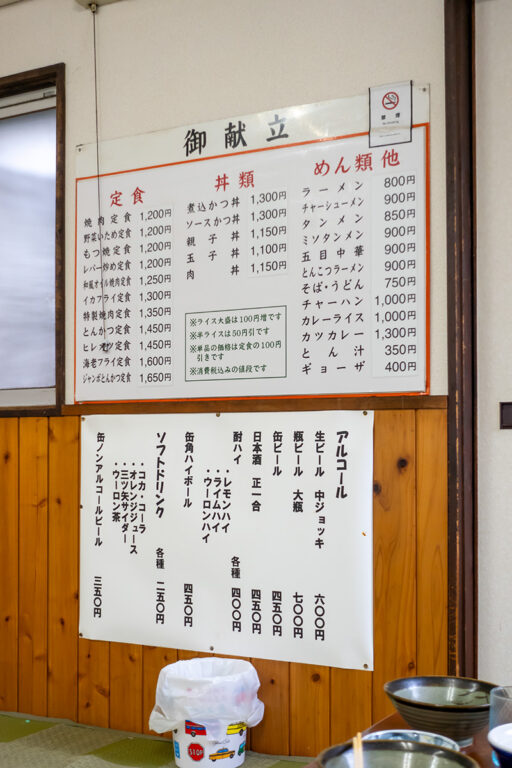 御献立
禁煙
定食
焼肉定食 1,200円
野菜いため定食 1,200円
もつ焼定食 1,200円
レバー炒め定食 1,200円
和風オイル焼肉定食 1,250円
イカフライ定食 1,300円
特製焼肉定食 1,350円
とんかつ定食 1,450円
ヒレオン定食 1,450円
海老フライ定食 1,600円
ジャンボとんかつ定食 1,650円
丼類
煮込かつ丼 1,300円
ソースかつ丼 1,300円
親子丼 1,150円
玉子丼 1,100円
肉丼 1,150円
※ライス大盛は100円増です
※半ライスは50円引です
※単品の価格は定食の100円
引きです
※消費税込みの値段です
めん類他
ラーメン 800円
チャーシューメン 900円
タンメン 850円
ミソタンメン 900円
五目中華 900円
とんこつラーメン 900円
そば・うどん 750円
チャーハン 1,000円
カレーライス 1,000円
カツカレー 1,300円
とん汁 350円
ギョーザ 400円
アルコール
生ビール 中ジョッキ 六〇〇円
瓶ビール 大瓶 七〇〇円
缶ビール 四五〇円
日本酒 正一合 四五〇円
酎ハイ 各種 四〇〇円
・レモンハイ
・ライムハイ
・ウーロンハイ
缶角ハイボール 四五〇円
ソフトドリンク 各種 二五〇円
・コカ・コーラ
・オレンジジュース
・三ツ矢サイダー
・ウーロン茶
缶ノンアルコールビール 三五〇円
STOP